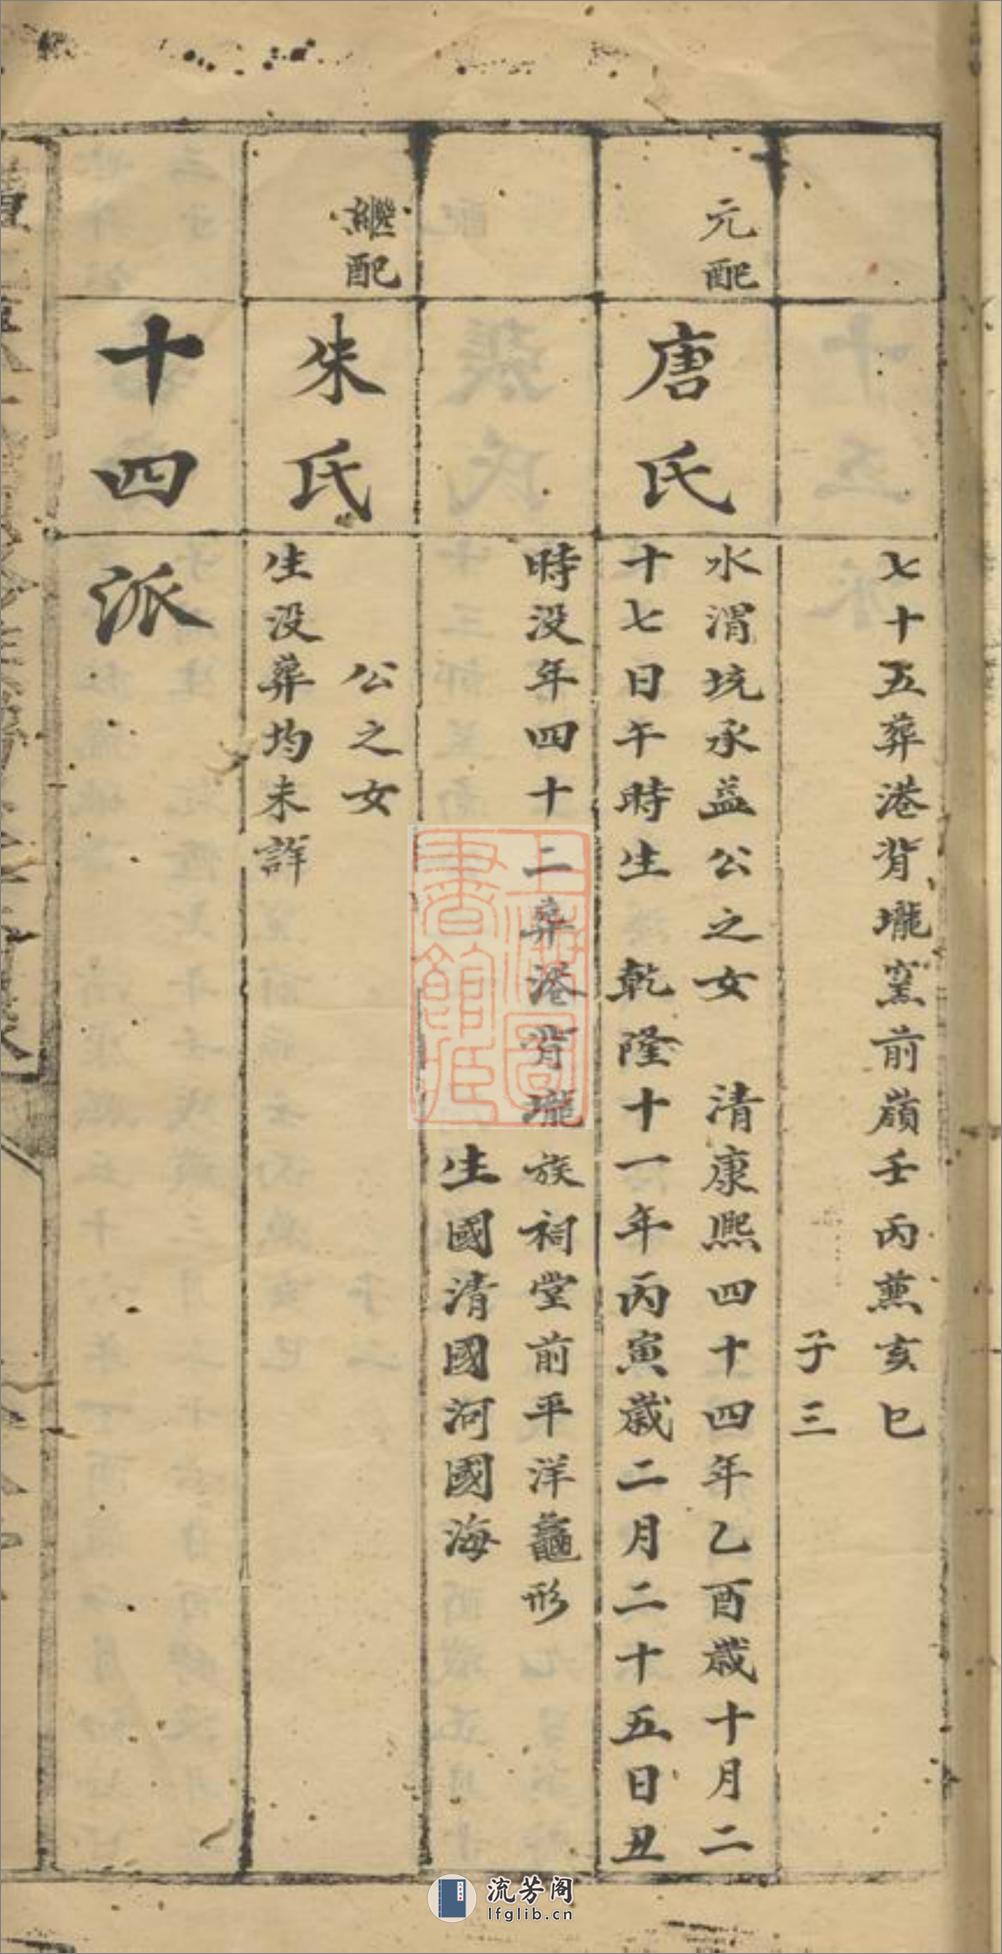 七十五葬港背壠窯前嶺壬丙兼亥巳
子三
元配
唐氏
水渭坑承益公之女　清康熙四十四年乙酉歲十月二
十七日午時生　乾隆十一年丙寅歲二月二十五日丑
時没年四十二葬港背壠族祠堂前平洋龜形
生國清國河國海
繼配
朱氏
公之女
生没葬均未詳
十四派
上海圖書館藏
流芳阁
lfglib.cn